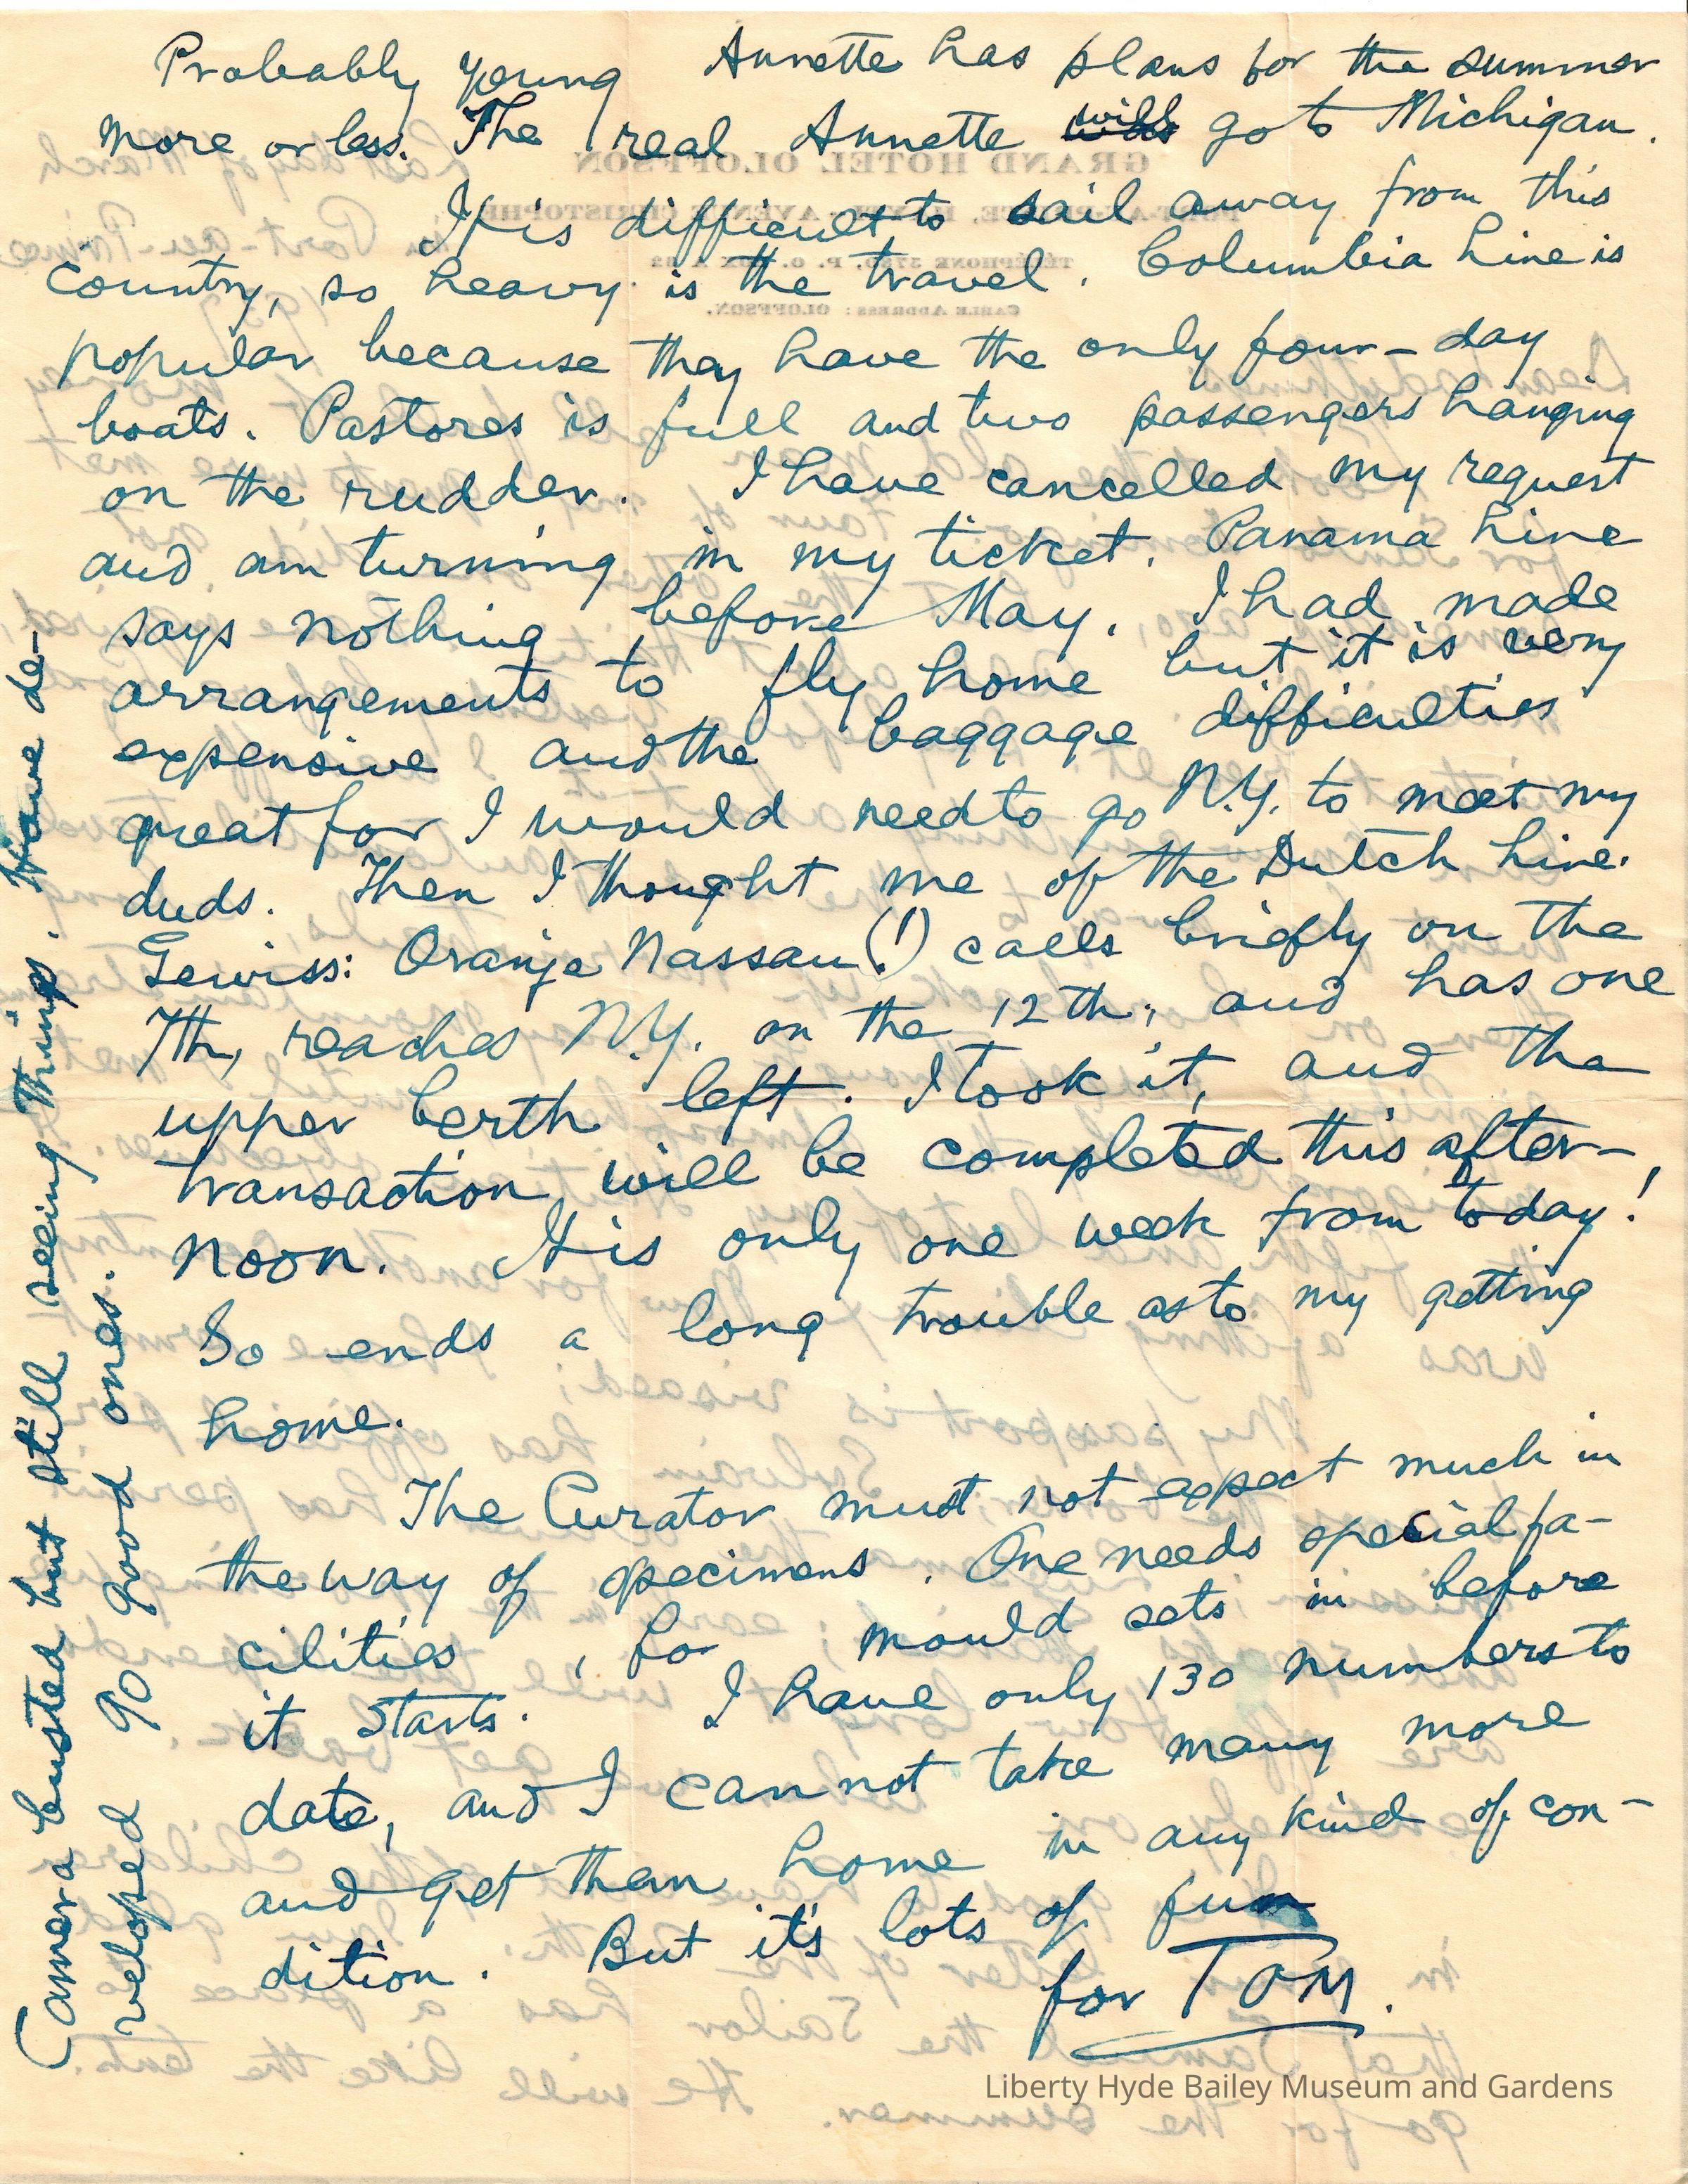 Probably young Annette has plans for the summer
more or less. The real Annette will go to Michigan.
It is difficult to sail away from this
country, so heavy is the travel. Columbia Line is
popular because they have the only four-day
boats. Pastores is full and two passengers hanging
on the rudder. I have cancelled my request
and am turning in my ticket. Panama Line
says nothing before May. I had made
arrangements to fly home but it is very
expensive and the baggage difficulties
great for I would need to go N.Y. to meet my
duds. Then I thought me of the Dutch Line.
Gewiss: Oranje Nassau (!) calls briefly on the
7th, reaches N.Y. on the 12th; and has one
upper berth left. I took it, and the
transaction will be completed this after-
noon. It is only one week from today!
So ends a long trouble as to my getting
home.
The Curator must not expect much in
the way of specimens. One needs special fa-
cilities, for mould sets in before
it starts. I have only 130 numbers to
date, and I cannot take many more
and get them home in any kind of con-
dition. But it's lots of fun
for TOM.
Camera busted but still seeing Things. Have de-
veloped 90 good ones.
Liberty Hyde Bailey Museum and Gardens